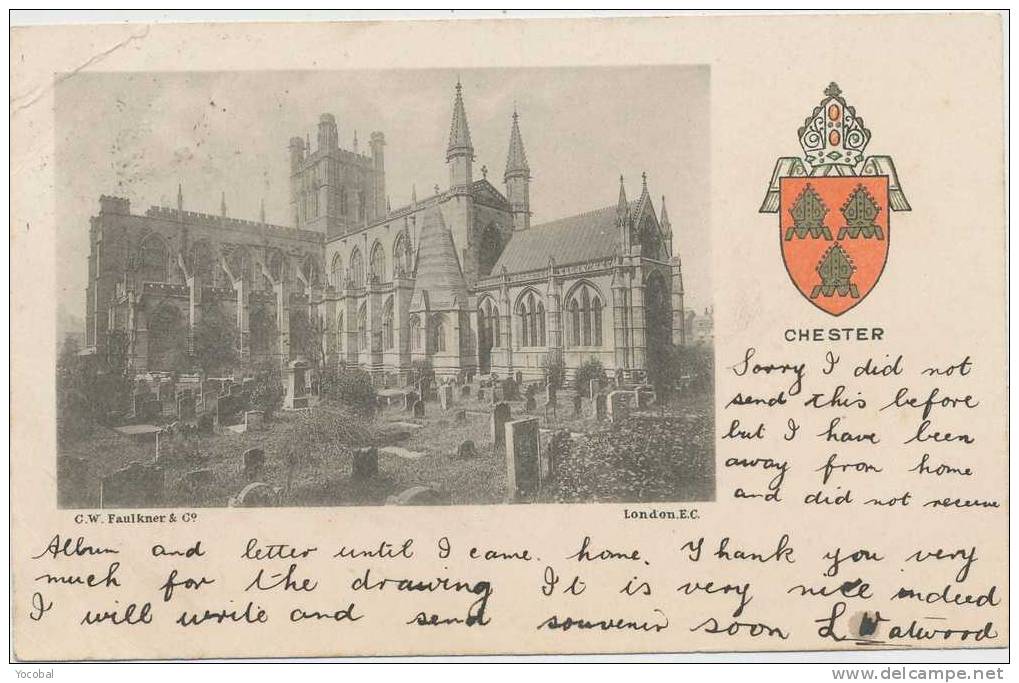 C.W. Faulkner & Co
London.E.C.
CHESTER
Sorry I did not
send this before
but I have been
away from home
and did not receive
Album and letter until I came home. Thank you very
much for the drawing It is very nice indeed
I will write and send souvenir soon L Watwood
Yocobal
www.delcampe.net